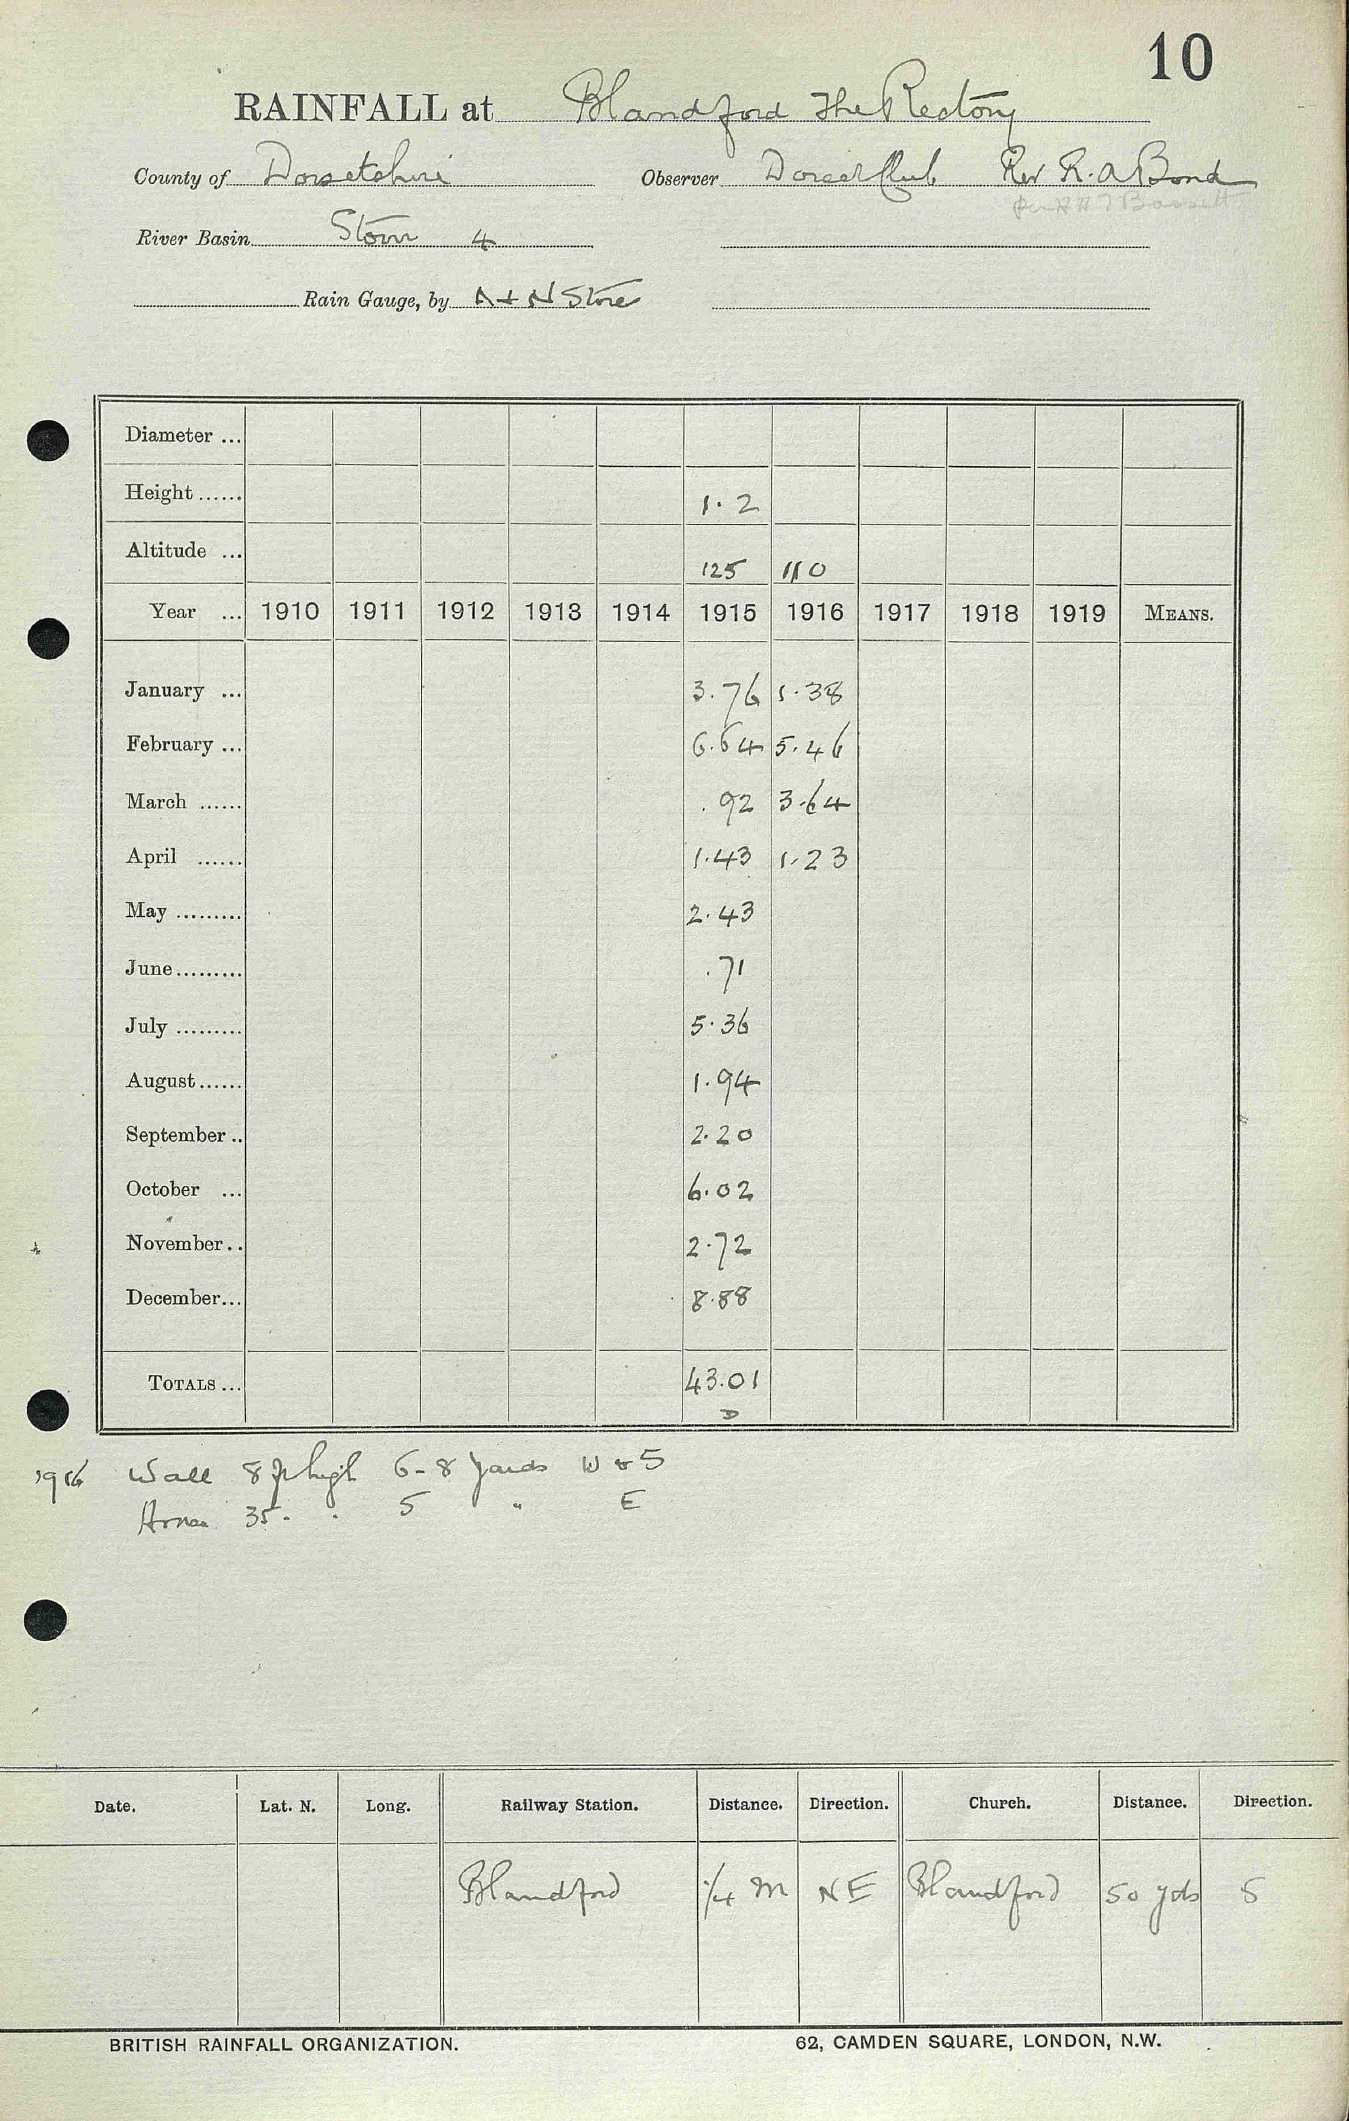 10
RAINFALL at Blandford The Rectory
County of Dorsetshire Observer Dorset Club Rev R. A Bond
River Basin Stour 4
Rain Gauge, by A & N Store
Diameter ...
Height ...... 1.2
Altitude ... 125 110
Year ... 1910 1911 1912 1913 1914 1915 1916 1917 1918 1919 MEANS.
January ... 3.76 1.38
February ... 6.64 5.46
March ...... .92 3.64
April ...... 1.43 1.23
May ......... 2.43
June ......... .71
July ......... 5.36
August ...... 1.94
September .. 2.20
October ... 6.02
November .. 2.72
December ... 8.88
TOTALS ... 43.01
D
1916 Wall 8 ft high 6-8 yards W & S
35 . . 5 " E
Date. Lat. N. Long. Railway Station. Distance. Direction. Church. Distance. Direction.
Blandford 1/4 m NE Blandford 50 yds S
BRITISH RAINFALL ORGANIZATION. 62, CAMDEN SQUARE, LONDON, N.W.